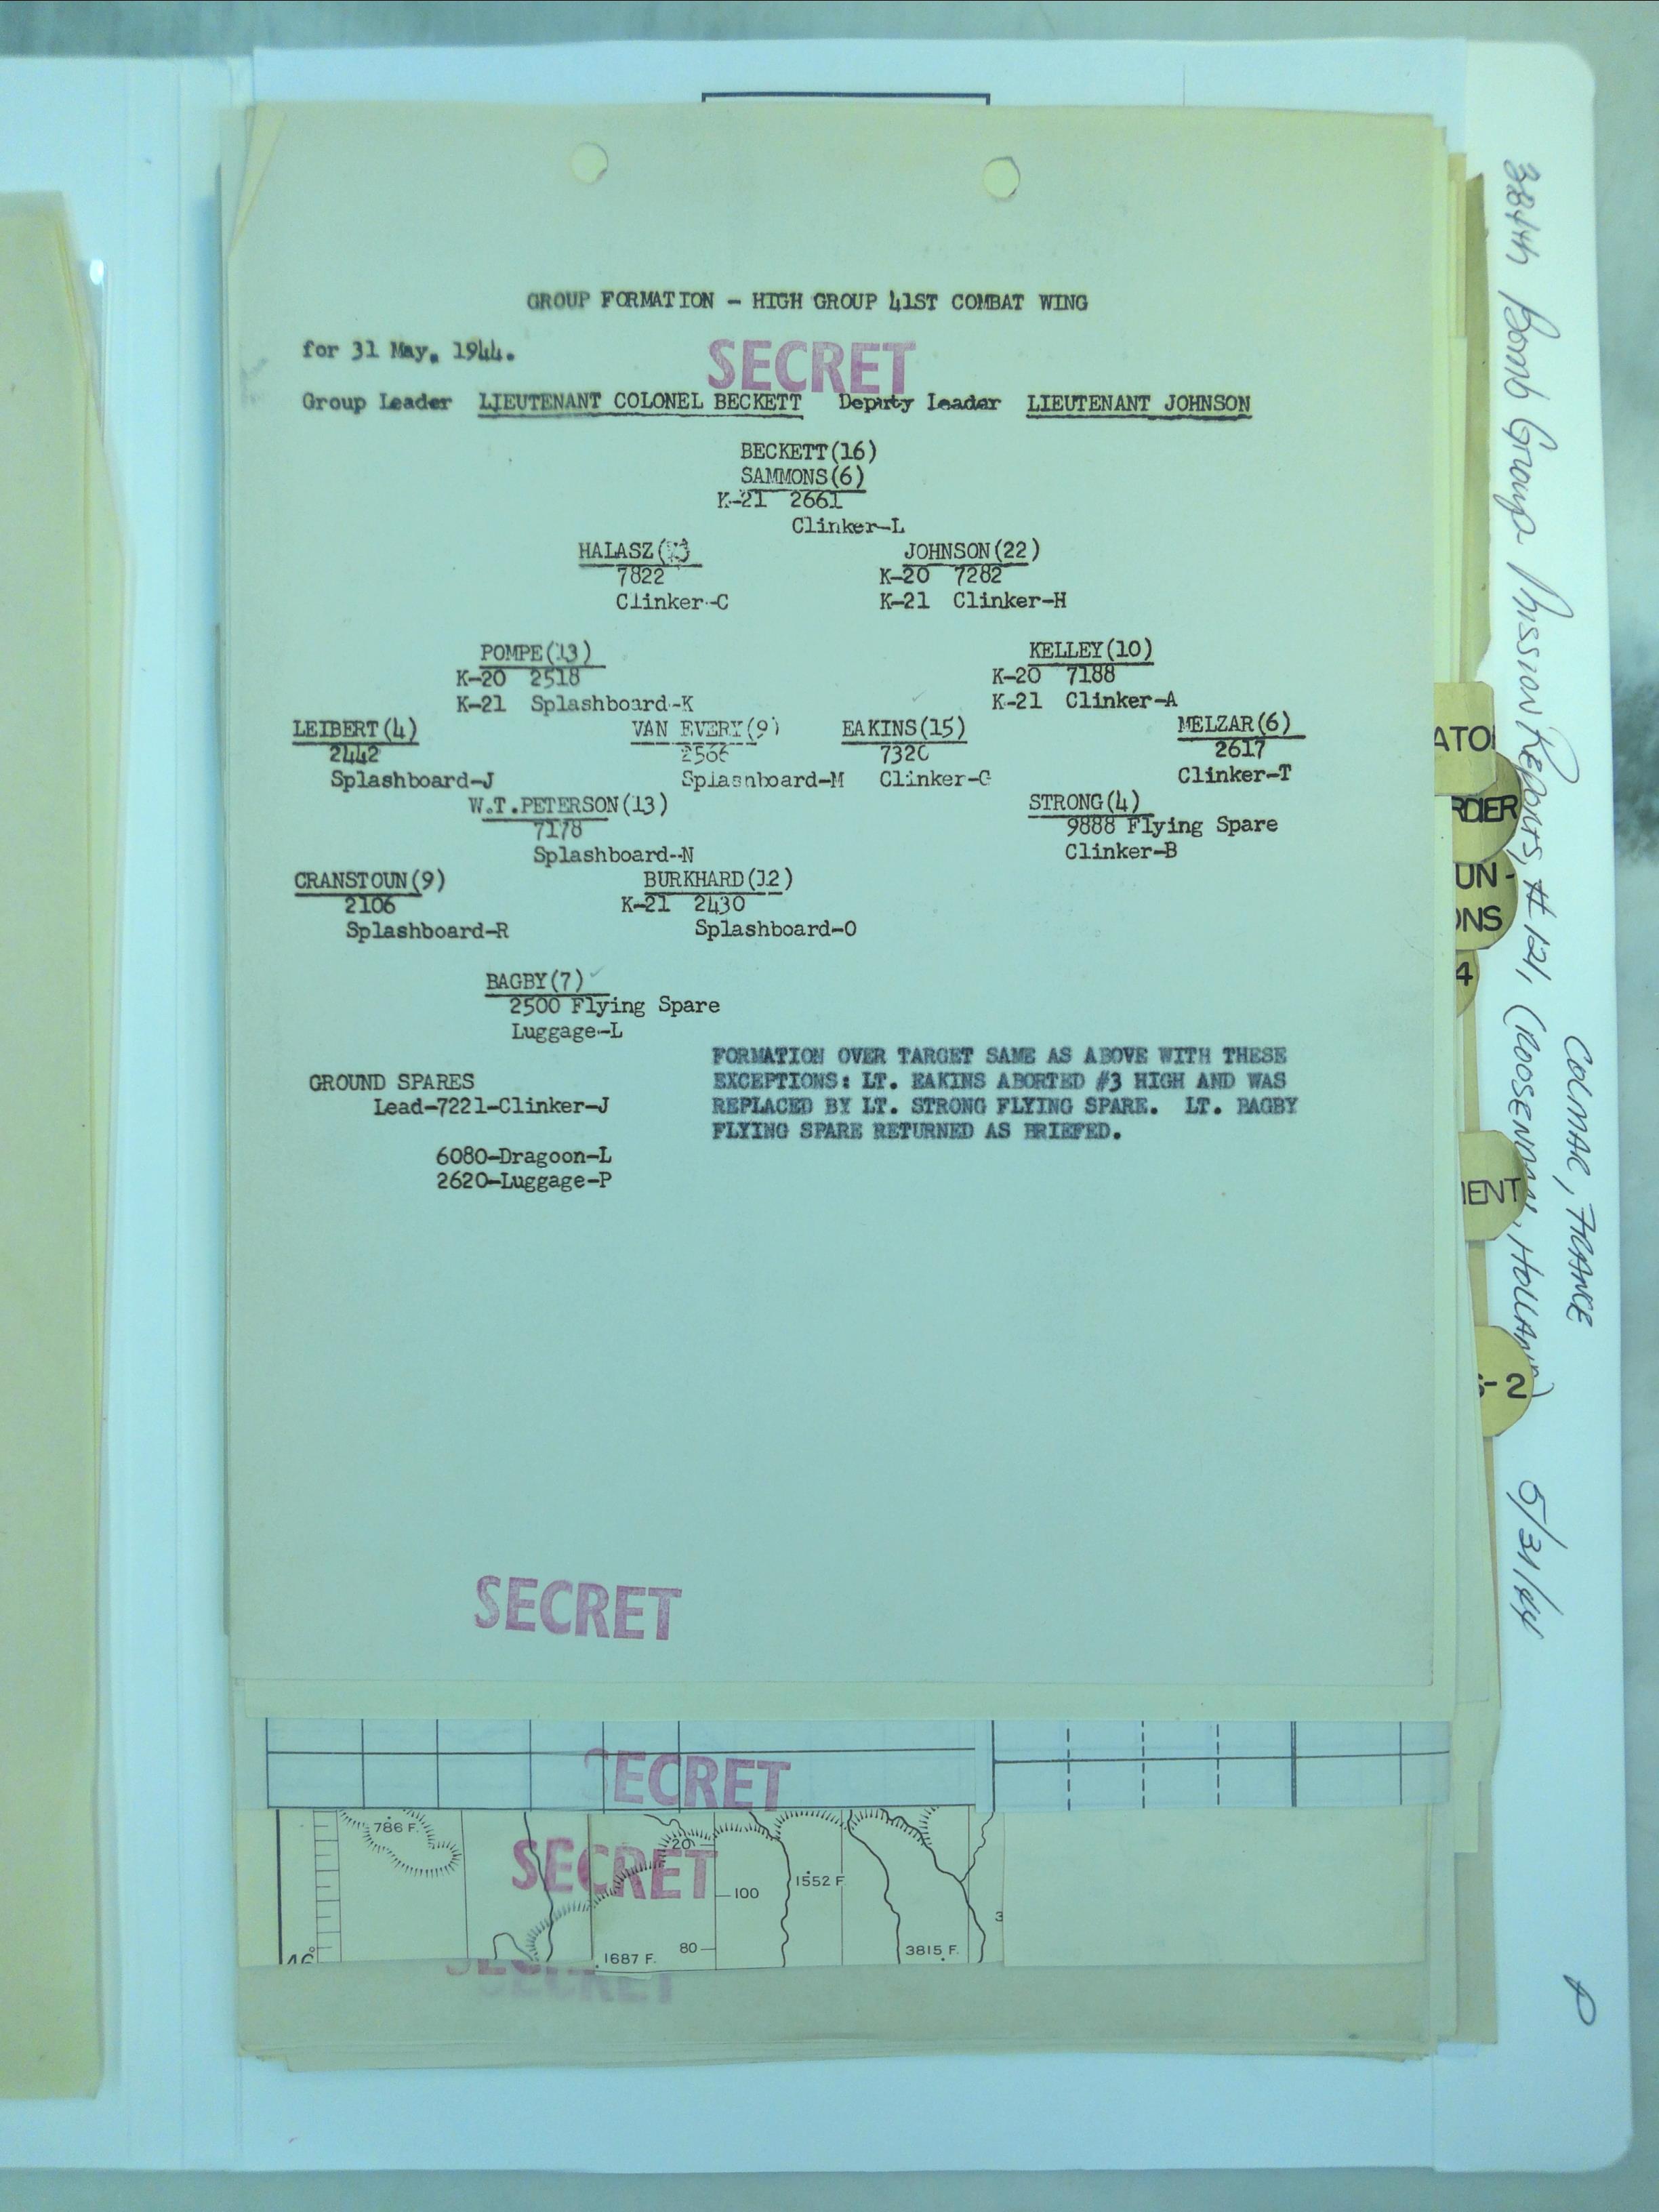 GROUP FORMATION - HIGH GROUP 41ST COMBAT WING
for 31 May, 1944.
SECRET
Group Leader LIEUTENANT COLONEL BECKETT Deputy Leader LIEUTENANT JOHNSON
BECKETT(16)
SAMMONS(6)
K-21 2661
Clinker-L
HALASZ JOHNSON(22)
7822 K-20 7282
Clinker-C K-21 Clinker-H
POMPE(13) KELLEY(10)
K-20 2518 K-20 7188
K-21 Splashboard-K K-21 Clinker-A
LEIBERT(4) VAN EVERY(9) EAKINS(15) MELZAR(6)
2442 2566 7320 2617
Splashboard-J Splashboard-M Clinker-G Clinker-T
W.T.PETERSON(13) STRONG(4)
7178 9888 Flying Spare
Splashboard-N Clinker-B
CRANSTOUN(9) BURKHARD(12)
2106 K-21 2430
Splashboard-R Splashboard-O
BAGBY(7)
2500 Flying Spare
Luggage-L
FORMATION OVER TARGET SAME AS ABOVE WITH THESE
EXCEPTIONS: LT. EAKINS ABORTED #3 HIGH AND WAS
REPLACED BY LT. STRONG FLYING SPARE. LT. BAGBY
FLYING SPARE RETURNED AS BRIEFED.
GROUND SPARES
Lead-7221-Clinker-J
6080-Dragoon-L
2620-Luggage-P
SECRET
SECRET
SECRET
786 F.
20
1552 F.
100
80
1687 F.
3815 F.
46°
3
SECRET
ATO
RDIER
UN-
ONS
4
MENT
S-2
384th Bomb Group Mission Reports, #121, (Roosendaal, Holland) 5/31/44
COLMAR, FRANCE
P